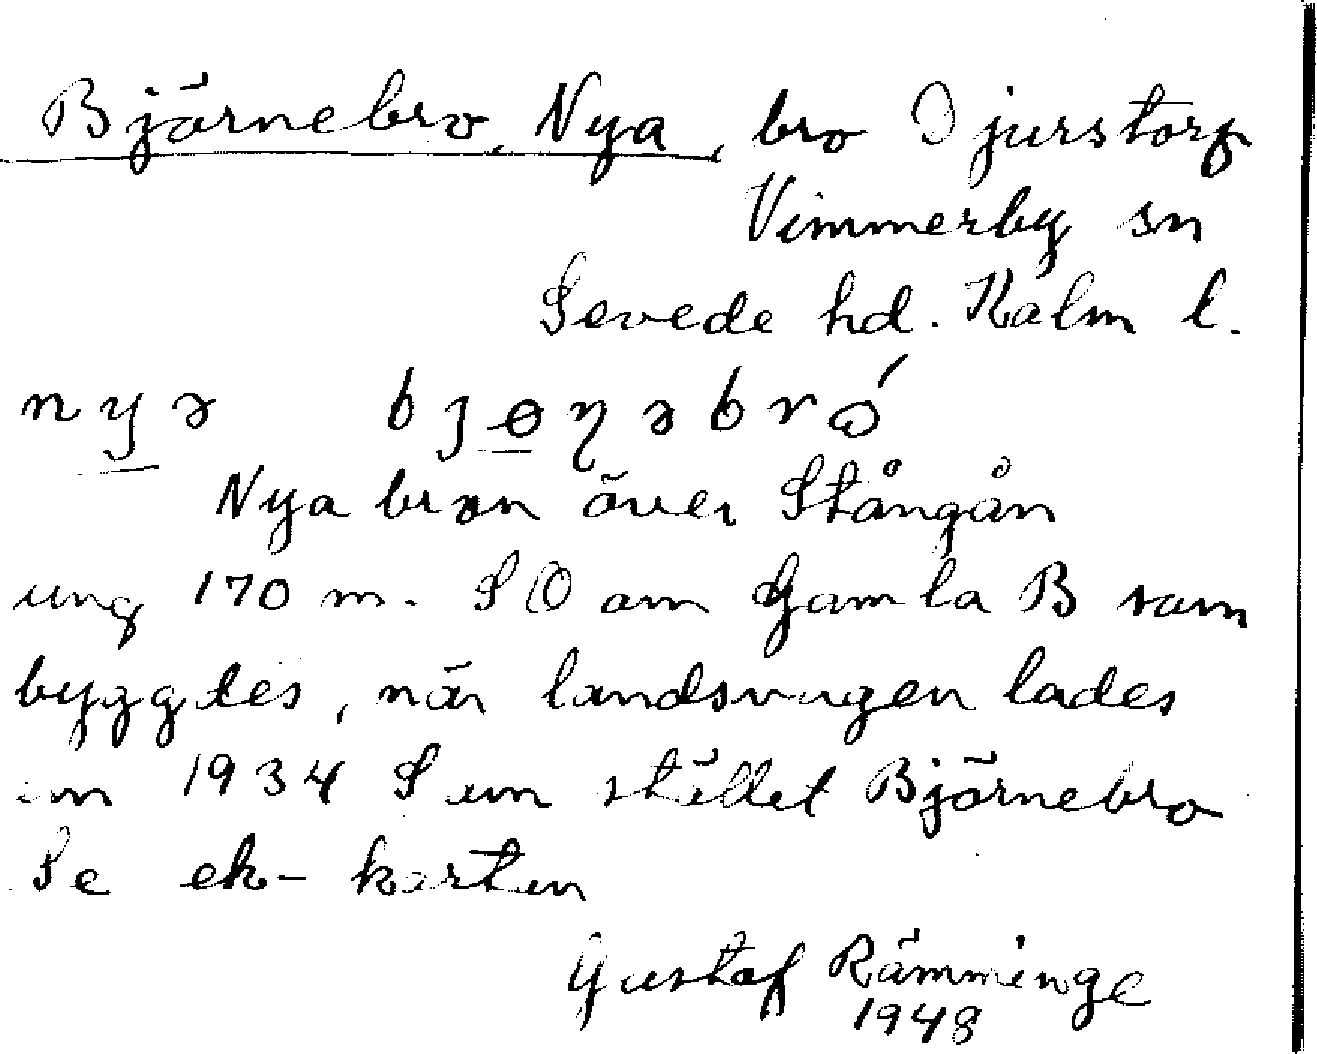 Björnebro, Nya, bro Djurstorp
Vimmerby sn
Sevede hd. Kalm l.
nyə bjɵɳəbró
Nya bron över Stångån
ung 170 m. SO om Gamla B som
byggdes, när landsvägen lades
om 1934 S om stället Björnebro
Se ek-kartan
Gustaf Rämminge
1948